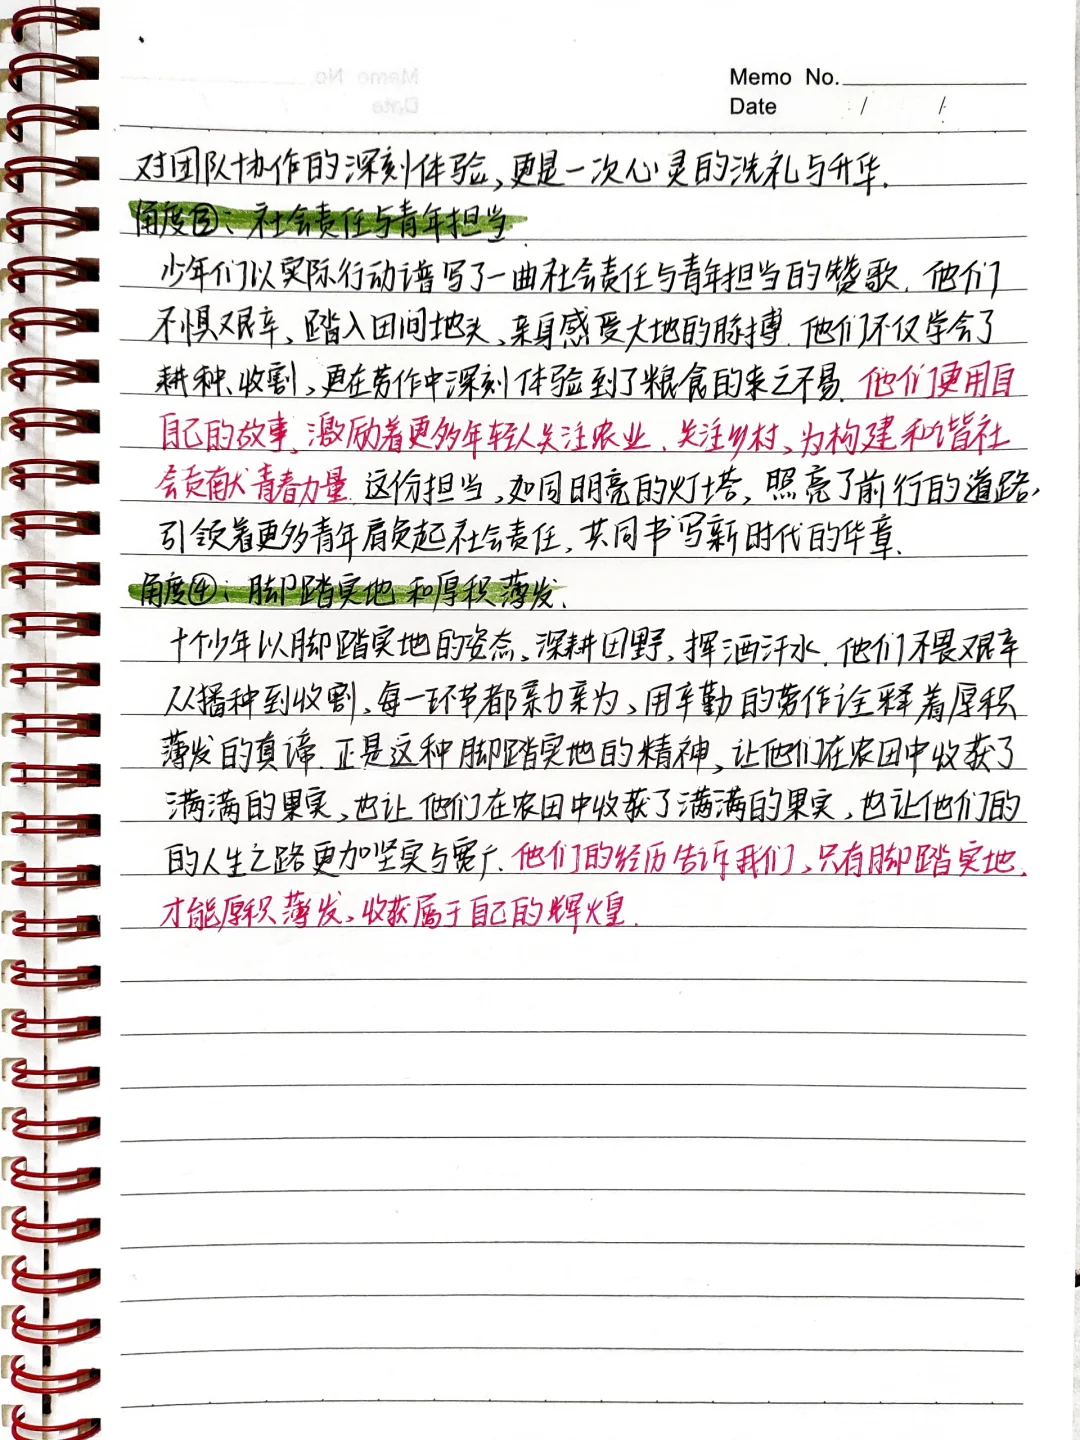 Memo No.
Date / /
对团队协作的深刻体验,更是一次心灵的洗礼与升华.
角度③:社会责任与青年担当.
少年们以实际行动谱写了一曲社会责任与青年担当的赞歌.他们
不惧艰辛、踏入田间地头,亲身感受大地的脉搏.他们不仅学会了
耕种、收割,更在劳作中深刻体验到了粮食的来之不易.他们更用自
自己的故事,激励着更多年轻人关注农业、关注乡村,为构建和谐社
会贡献青春力量.这份担当,如同明亮的灯塔,照亮了前行的道路,
引领着更多青年肩负起社会责任,共同书写新时代的华章.
角度④:脚踏实地和厚积薄发.
十个少年以脚踏实地的姿态,深耕田野,挥洒汗水.他们不畏艰辛
从播种到收割,每一环节都亲力亲为,用辛勤的劳作诠释着厚积
薄发的真谛.正是这种脚踏实地的精神,让他们在农田中收获了
满满的果实,也让他们在农田中收获了满满的果实,也让他们的
的人生之路更加坚实与宽广.他们的经历告诉我们,只有脚踏实地,
才能厚积薄发,收获属于自己的辉煌.